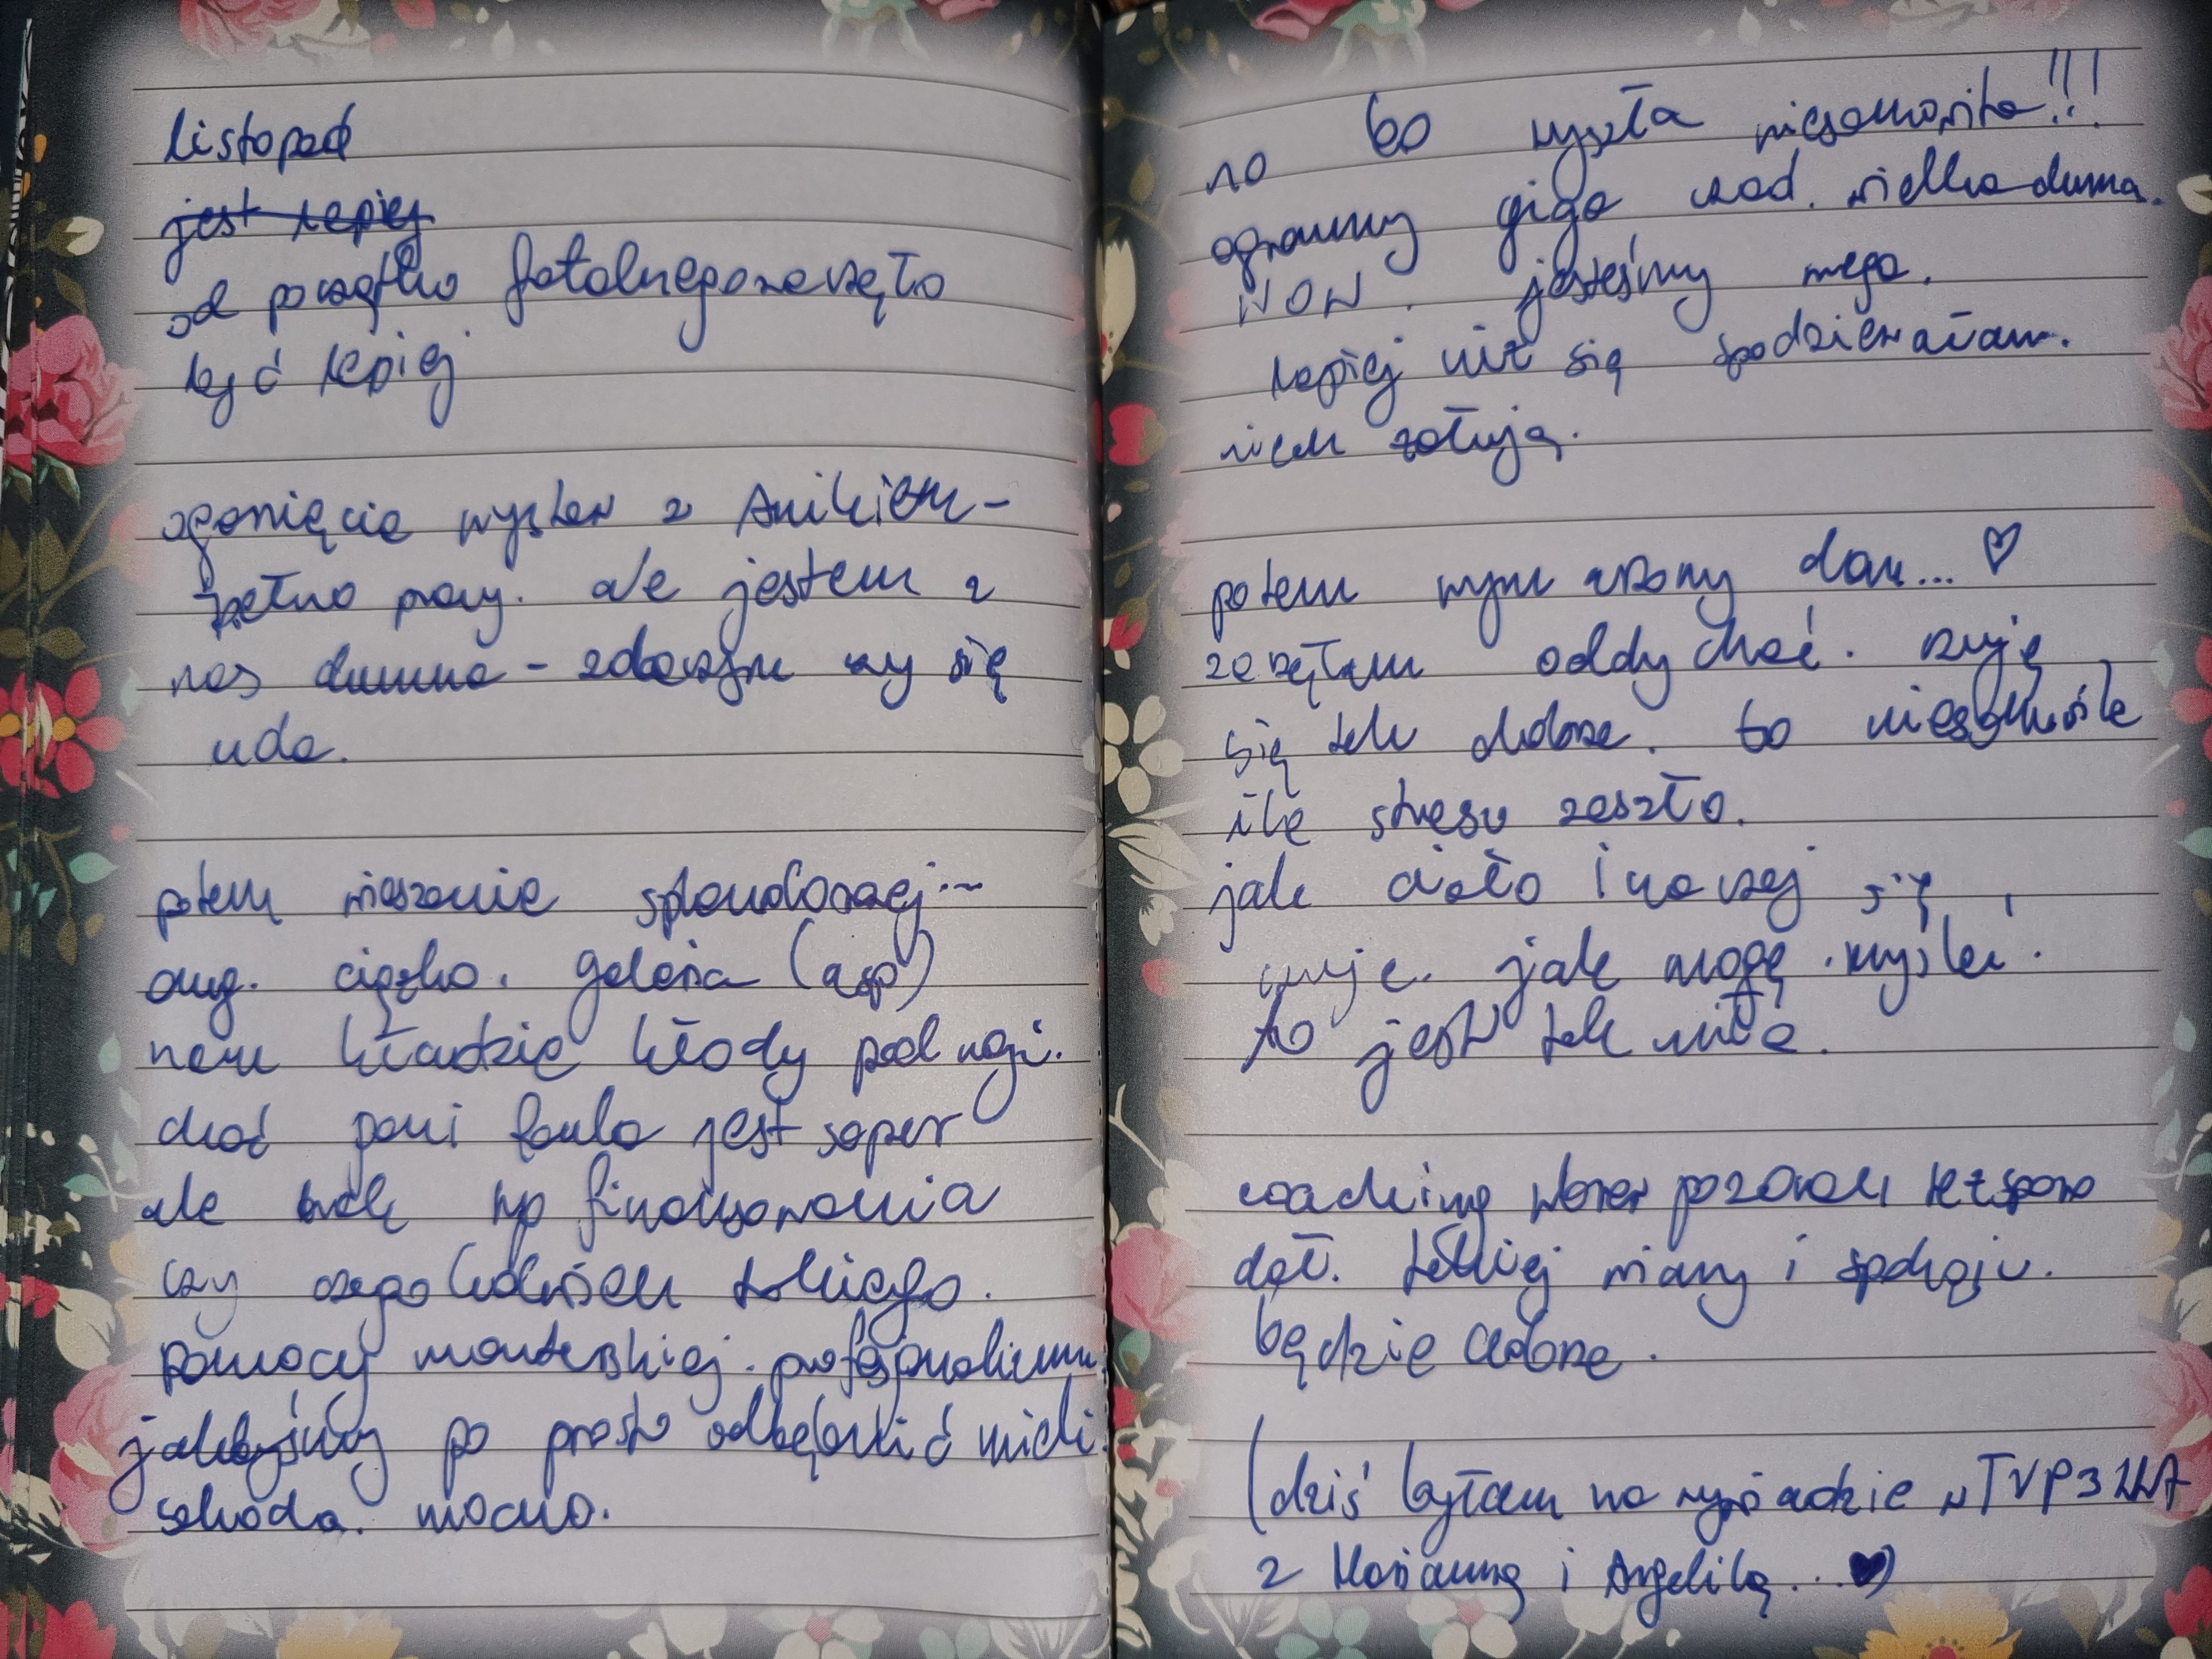 listopad
jest lepiej
od początku fatalnego zaczęło
być lepiej
ogarnięcie wystaw z Anikiem -
pełno pracy. ale jestem z
nas dumna - zobaczym czy się
uda.
potem wieszanie splendorowej...
omg. ciężko. galeria (asp)
nam kładzie kłody pod nogi.
choć pani Paula jest super
ale brak np finansowania
czy czegokolwiek takiego.
pomocy monterskiej. profesjonalizmu.
jakbyśmy po prostu odbębnić mieli.
szkoda. mocno.
no to wyszła niesamowita!!!
ogromny giga czad. wielka duma.
WOW. jesteśmy mega.
lepiej niż się spodziewałam.
niech żałują.
potem wymarzony dom... ♡
zaczęłam oddychać. czuję
się tak dobrze. to niesamowite
ile stresu zeszło.
jak ciało inaczej się
czuje. jak mogę myśleć.
to jest tak miłe.
coaching wbrew pozorom też sporo
dał. takiej wiary i spokoju.
będzie dobrze.
(dziś byłam na wywiadzie w TVP3
z Marianną i Angeliką... ♥)